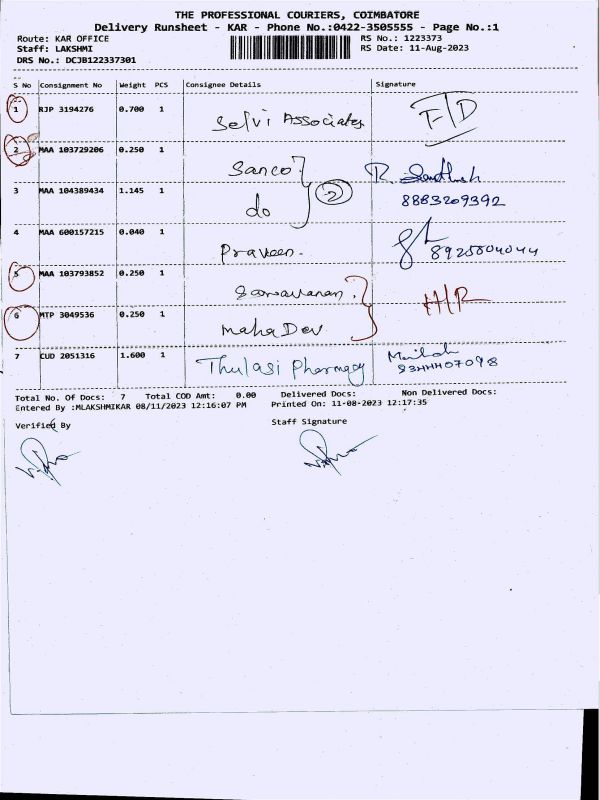 THE PROFESSIONAL COURIERS, COIMBATORE
Delivery Runsheet - KAR - Phone No.:0422-3505555 - Page No.:1
Route: KAR OFFICE RS No.: 1223373
Staff: LAKSHMI RS Date: 11-Aug-2023
DRS No.: DCJB122337301
S No Consignment No Weight PCS Consignee Details Signature
1 RJP 3194276 0.700 1 Selvi Associates F/D
2 MAA 103729206 0.250 1 Sanco
3 MAA 104389434 1.145 1 do 2 8883209392
4 MAA 600157215 0.040 1 Praveen. 8925804044
5 MAA 103793852 0.250 1 Saravanan
6 MTP 3049536 0.250 1 MahaDev H/R
7 CUD 2051316 1.600 1 Thulasi Pharmacy
Total No. Of Docs: 7 Total COD Amt: 0.00 Delivered Docs: Non Delivered Docs:
Entered By :MLAKSHMIKAR 08/11/2023 12:16:07 PM Printed On: 11-08-2023 12:17:35
Verified By Staff Signature